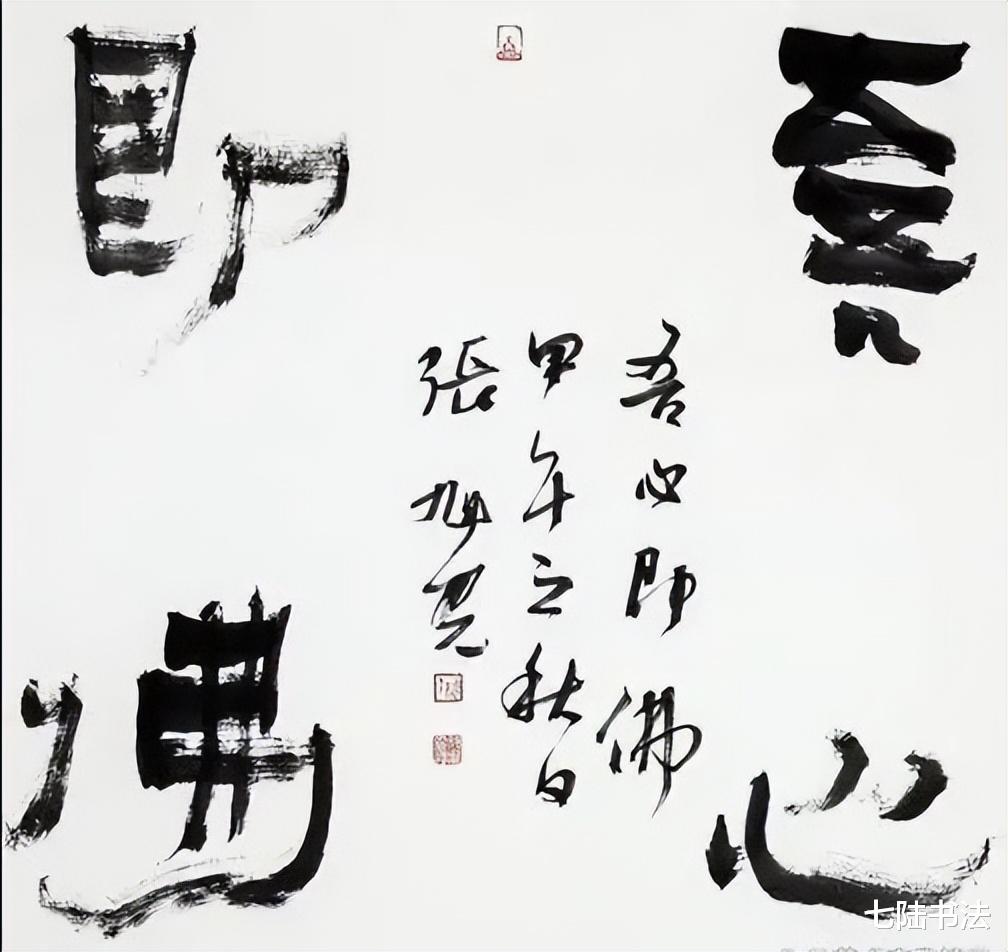 吾心
即佛
吾心即佛
甲午之秋日
張旭光
七陆书法